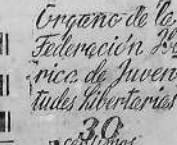 Órgano de la
Federación Ibé
rica de Juven
tudes Libertarias
30
centimos